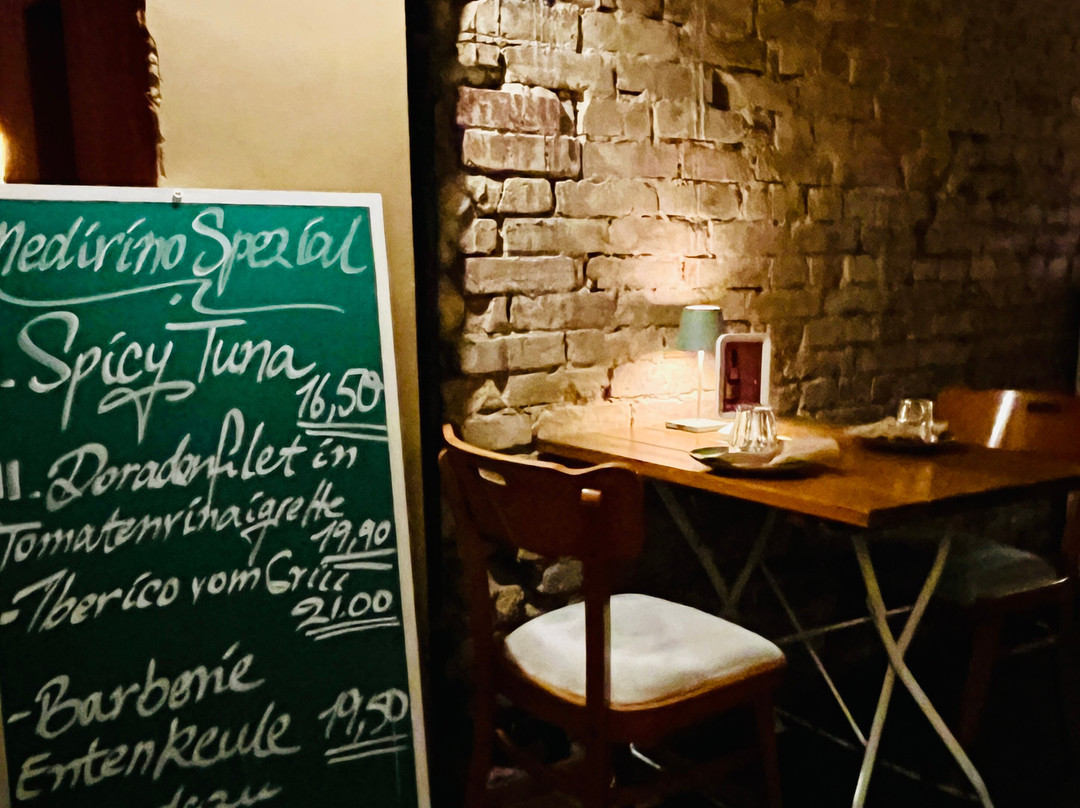 Medirino Spezial
. Spicy Tuna
16,50
11. Doradenfilet in
Tomatenvinaigrette
19,90
- Iberico vom Grill
21.00
- Barberie
Entenkeule 19,50
dazu